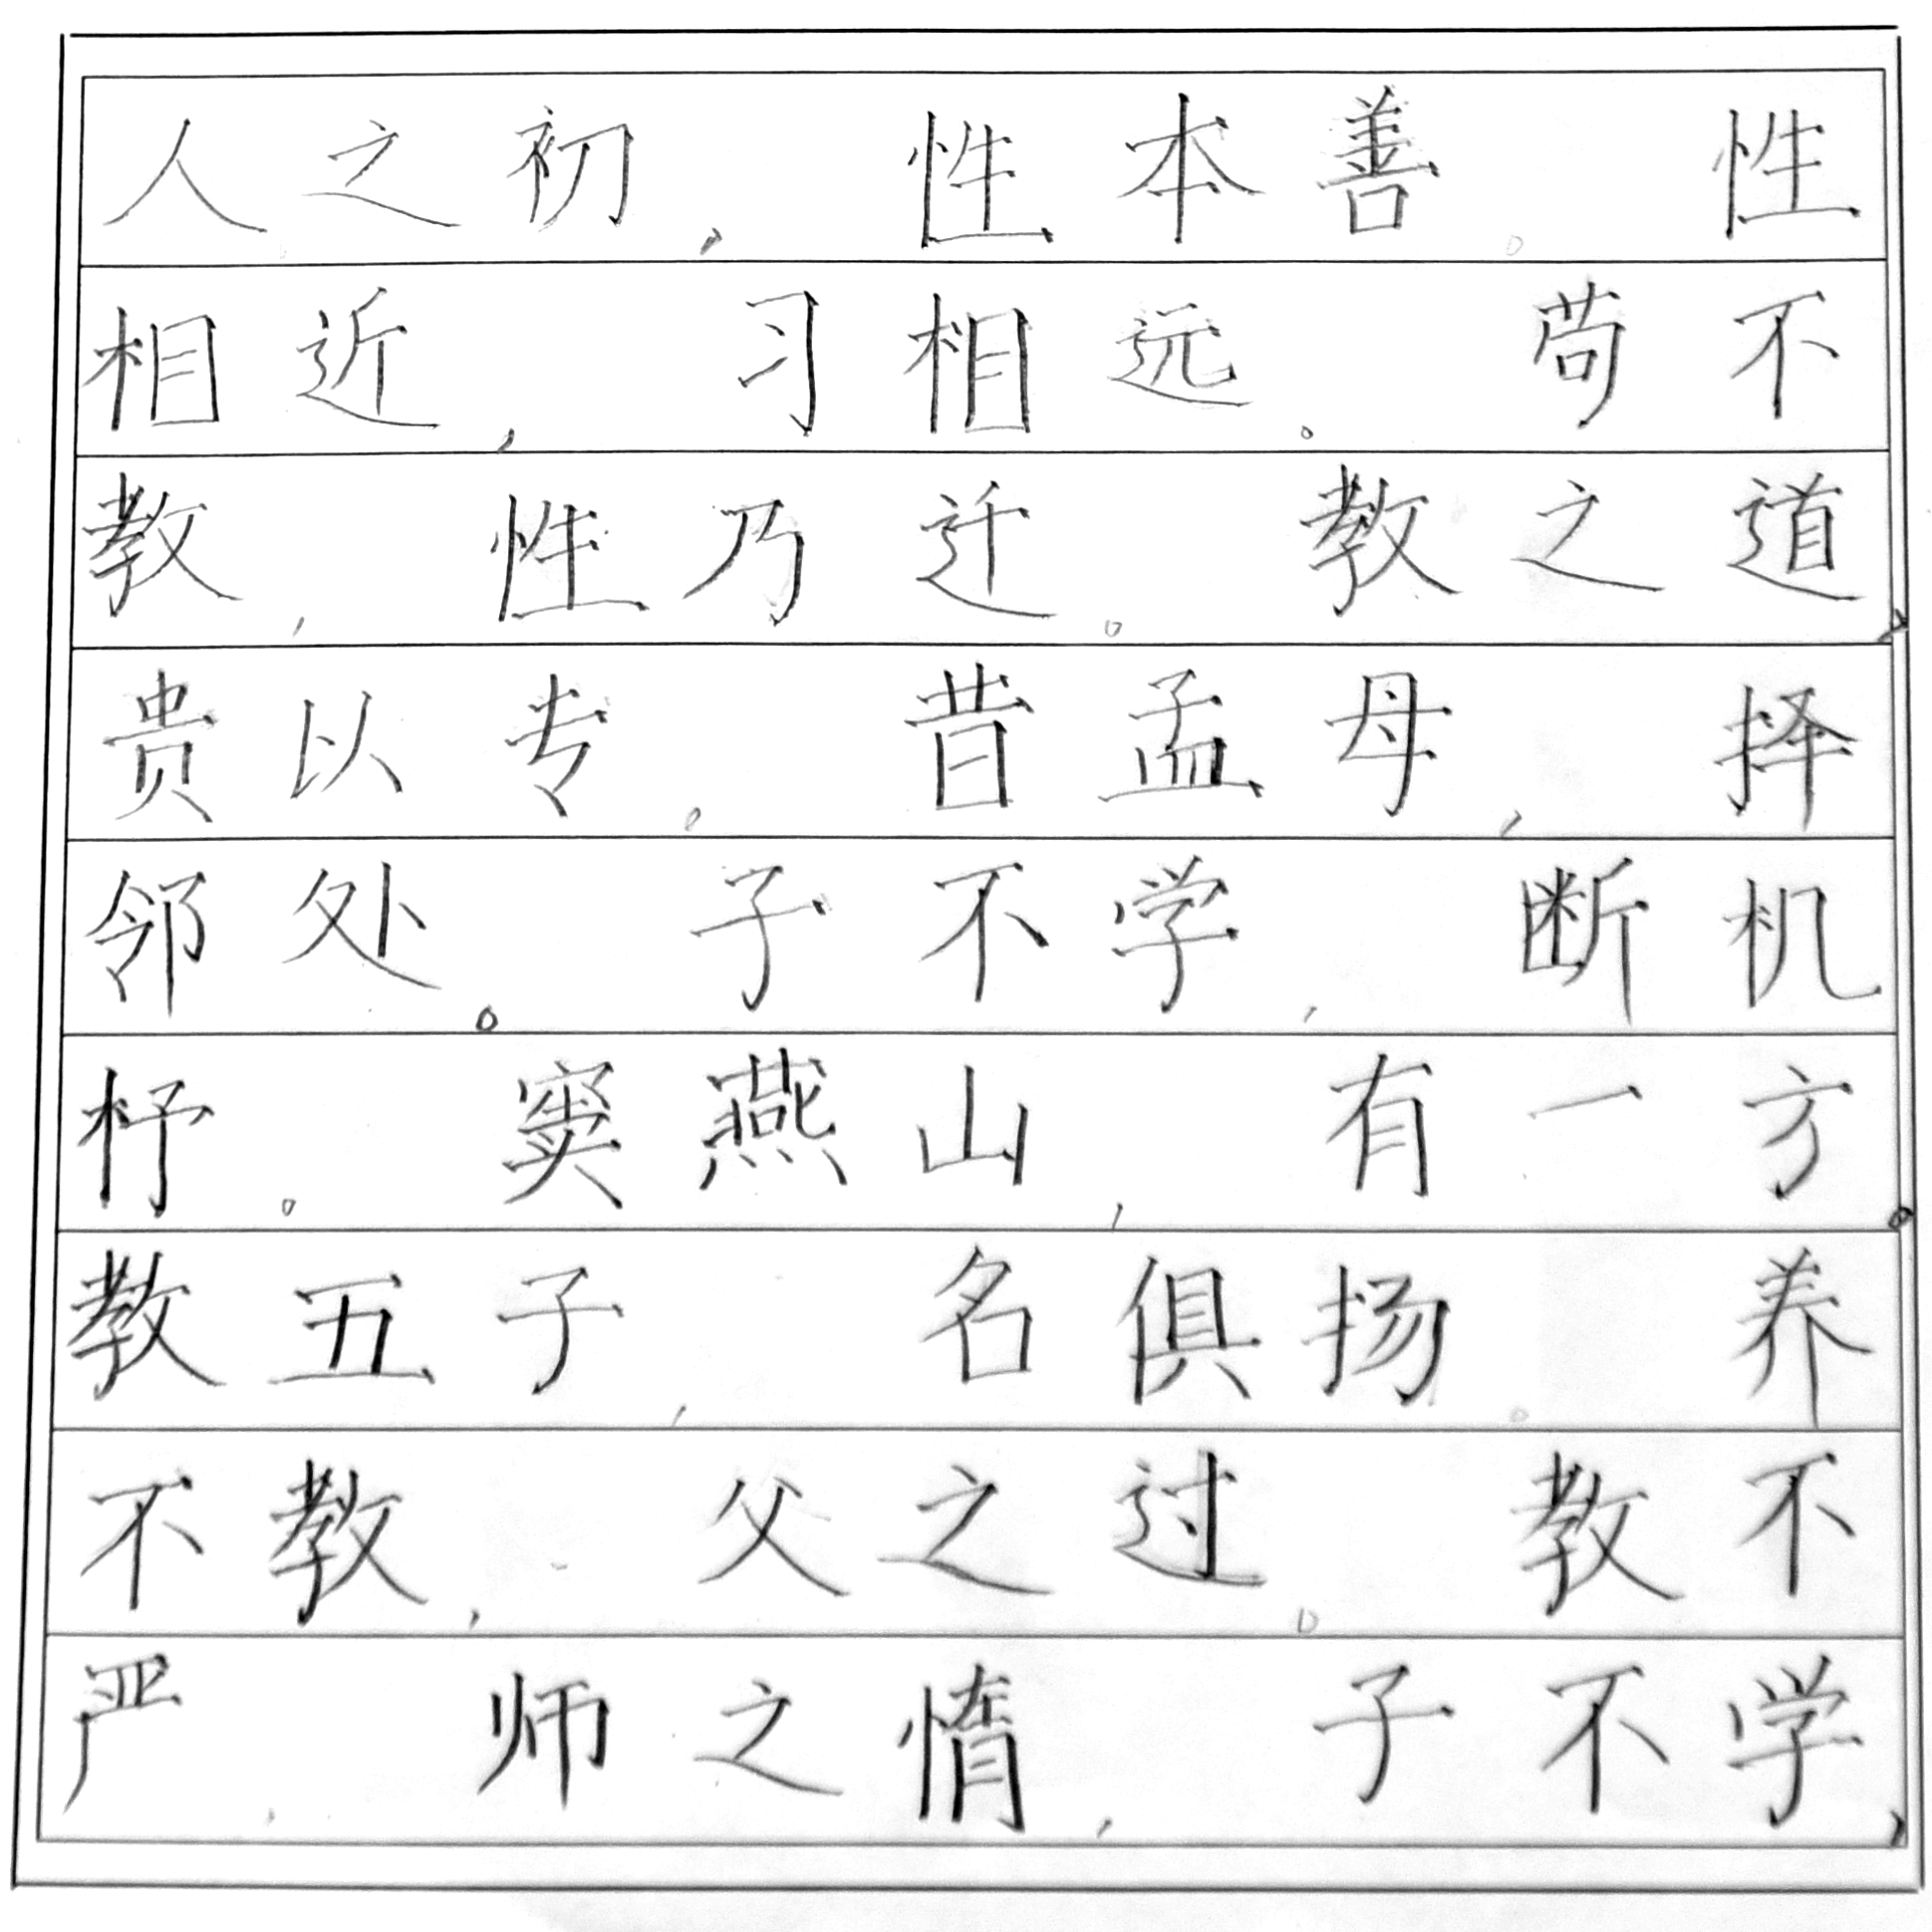 人之初，性本善。性
相近，习相远。苟不
教，性乃迁。教之道，
贵以专。昔孟母，择
邻处。子不学，断机
杼。窦燕山，有一方。
教五子，名俱扬。养
不教，父之过。教不
严，师之惰，子不学，